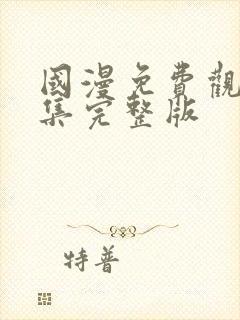 國漫免費觀
集完整版
特普